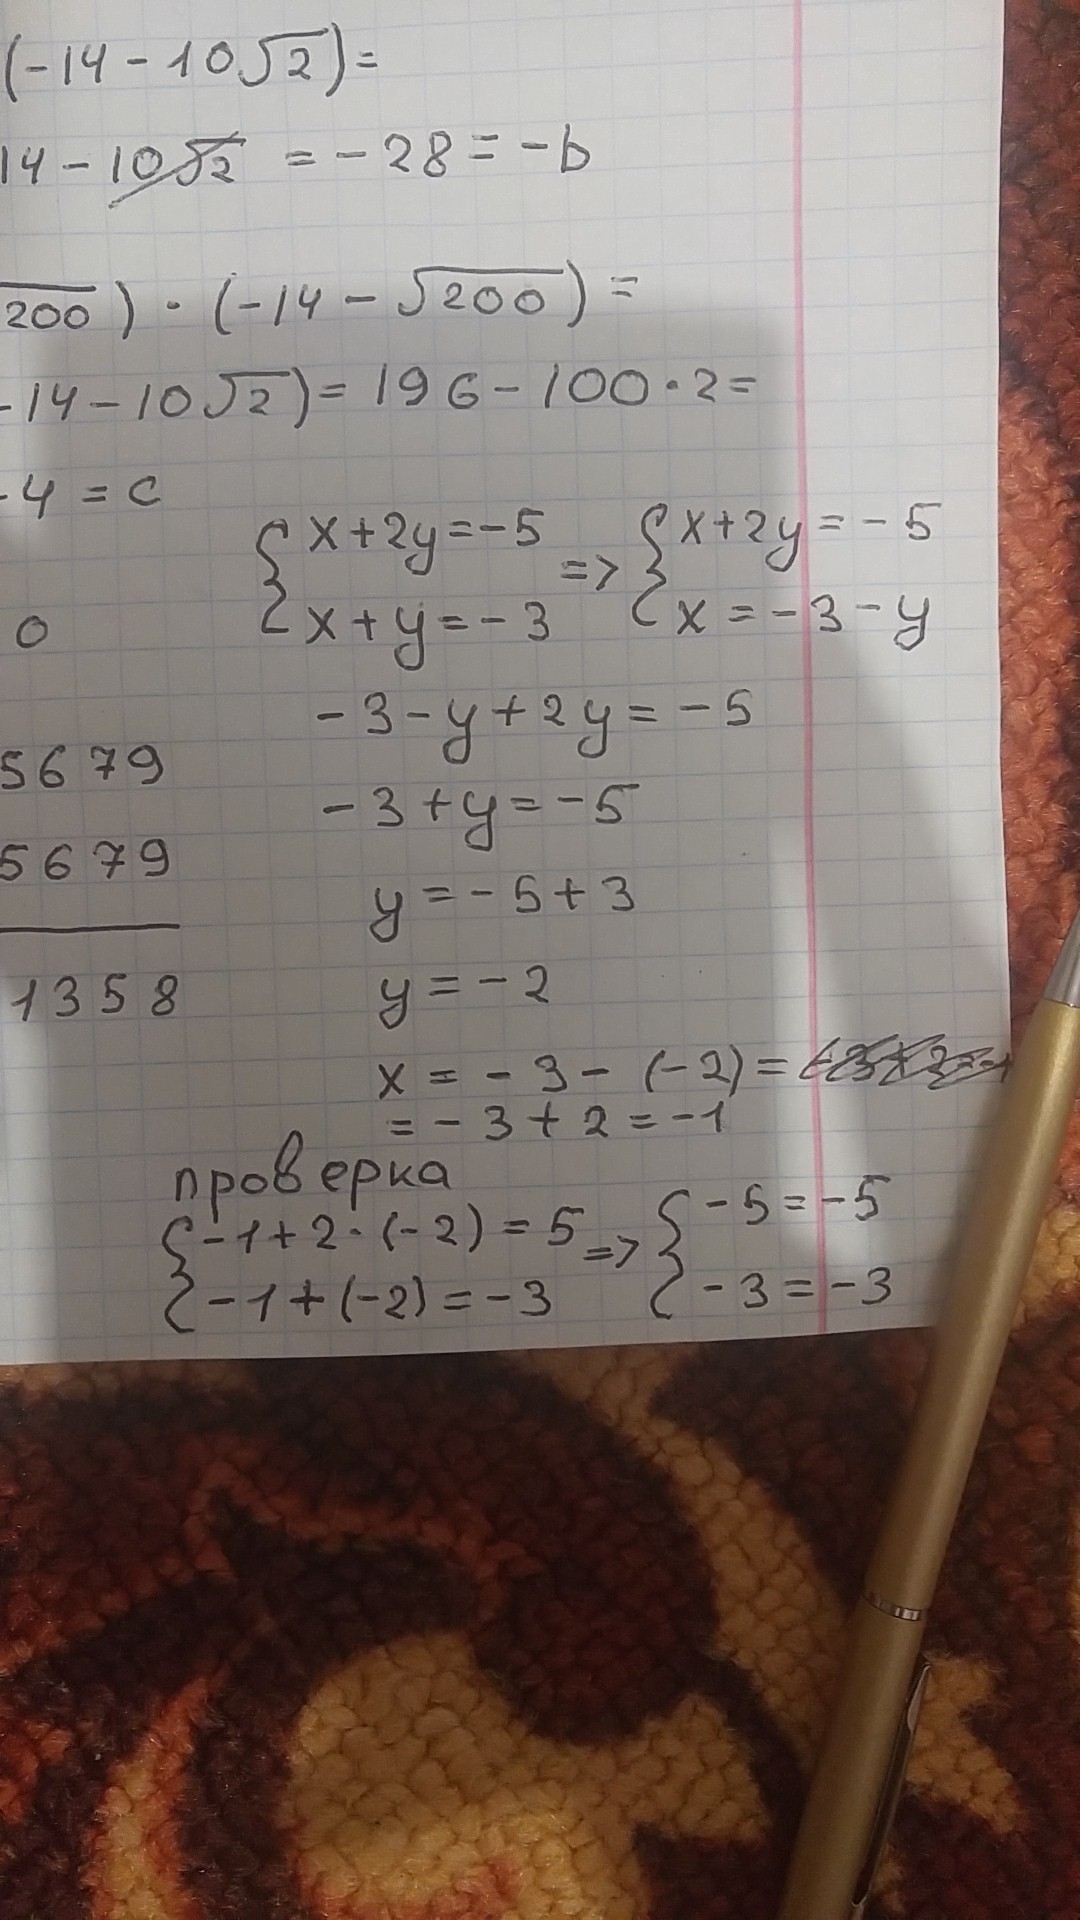 (-14-10√2)=
14-10√2 = -28 = -b
√200) · (-14-√200) =
-14-10√2) = 196-100·2=
-4 = c
{x+2y=-5 => {x+2y=-5
{x+y=-3 {x=-3-y
0
-3-y+2y=-5
5679
-3+y=-5
5679
y=-5+3
1358
y=-2
x = -3-(-2)=
= -3+2=-1
проверка
{-1+2·(-2)=5 => {-5=-5
{-1+(-2)=-3 {-3=-3